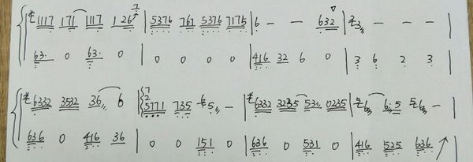 1117 171 1117 126 | 5376 761 5376 7175 | 6 — — 632 | 2 — — — |
63· 0 63· 0 | 0 0 0 0 | 416 32 6 0 | 3 6 2 3 |
6332 3532 36 6 | 5771 735 5 — | 6232 3235 53 0235 | 6 6·5 6 — |
636 0 416 36 | 0 0 151 0 | 636 0 531 0 | 416 525 636 |